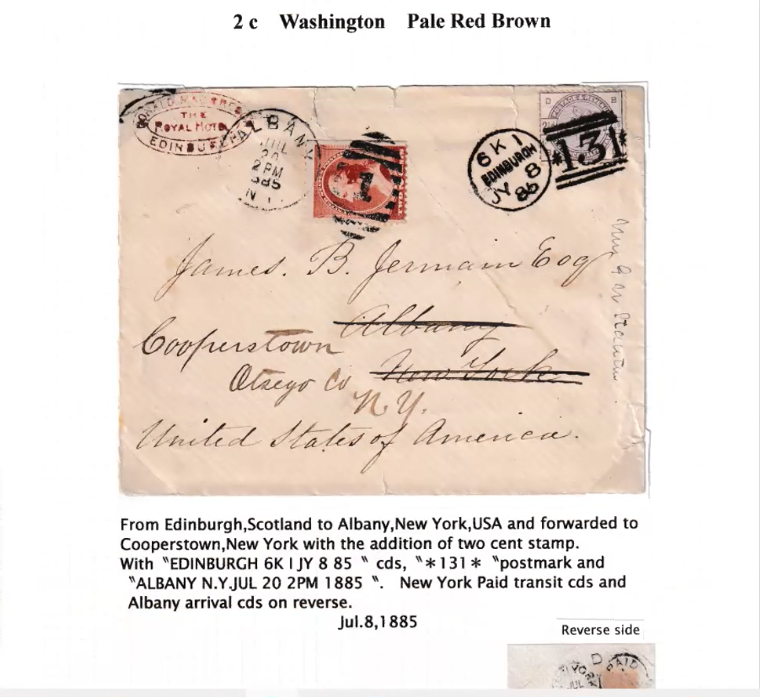 2 c Washington Pale Red Brown
THE
ROYAL HOTEL
EDINBURGH
ALBANY
JUL
20
2PM
1885
N.Y.
1
6K1
EDINBURGH
JY 8
85
*131*
D B
James. B. Jermain Esq
Albany
Cooperstown
New York
Otsego Co
N.Y.
United States of America.
From Edinburgh,Scotland to Albany,New York,USA and forwarded to
Cooperstown,New York with the addition of two cent stamp.
With "EDINBURGH 6K I JY 8 85 " cds, "*131* "postmark and
"ALBANY N.Y.JUL 20 2PM 1885 ". New York Paid transit cds and
Albany arrival cds on reverse.
Jul.8,1885
Reverse side
PAID